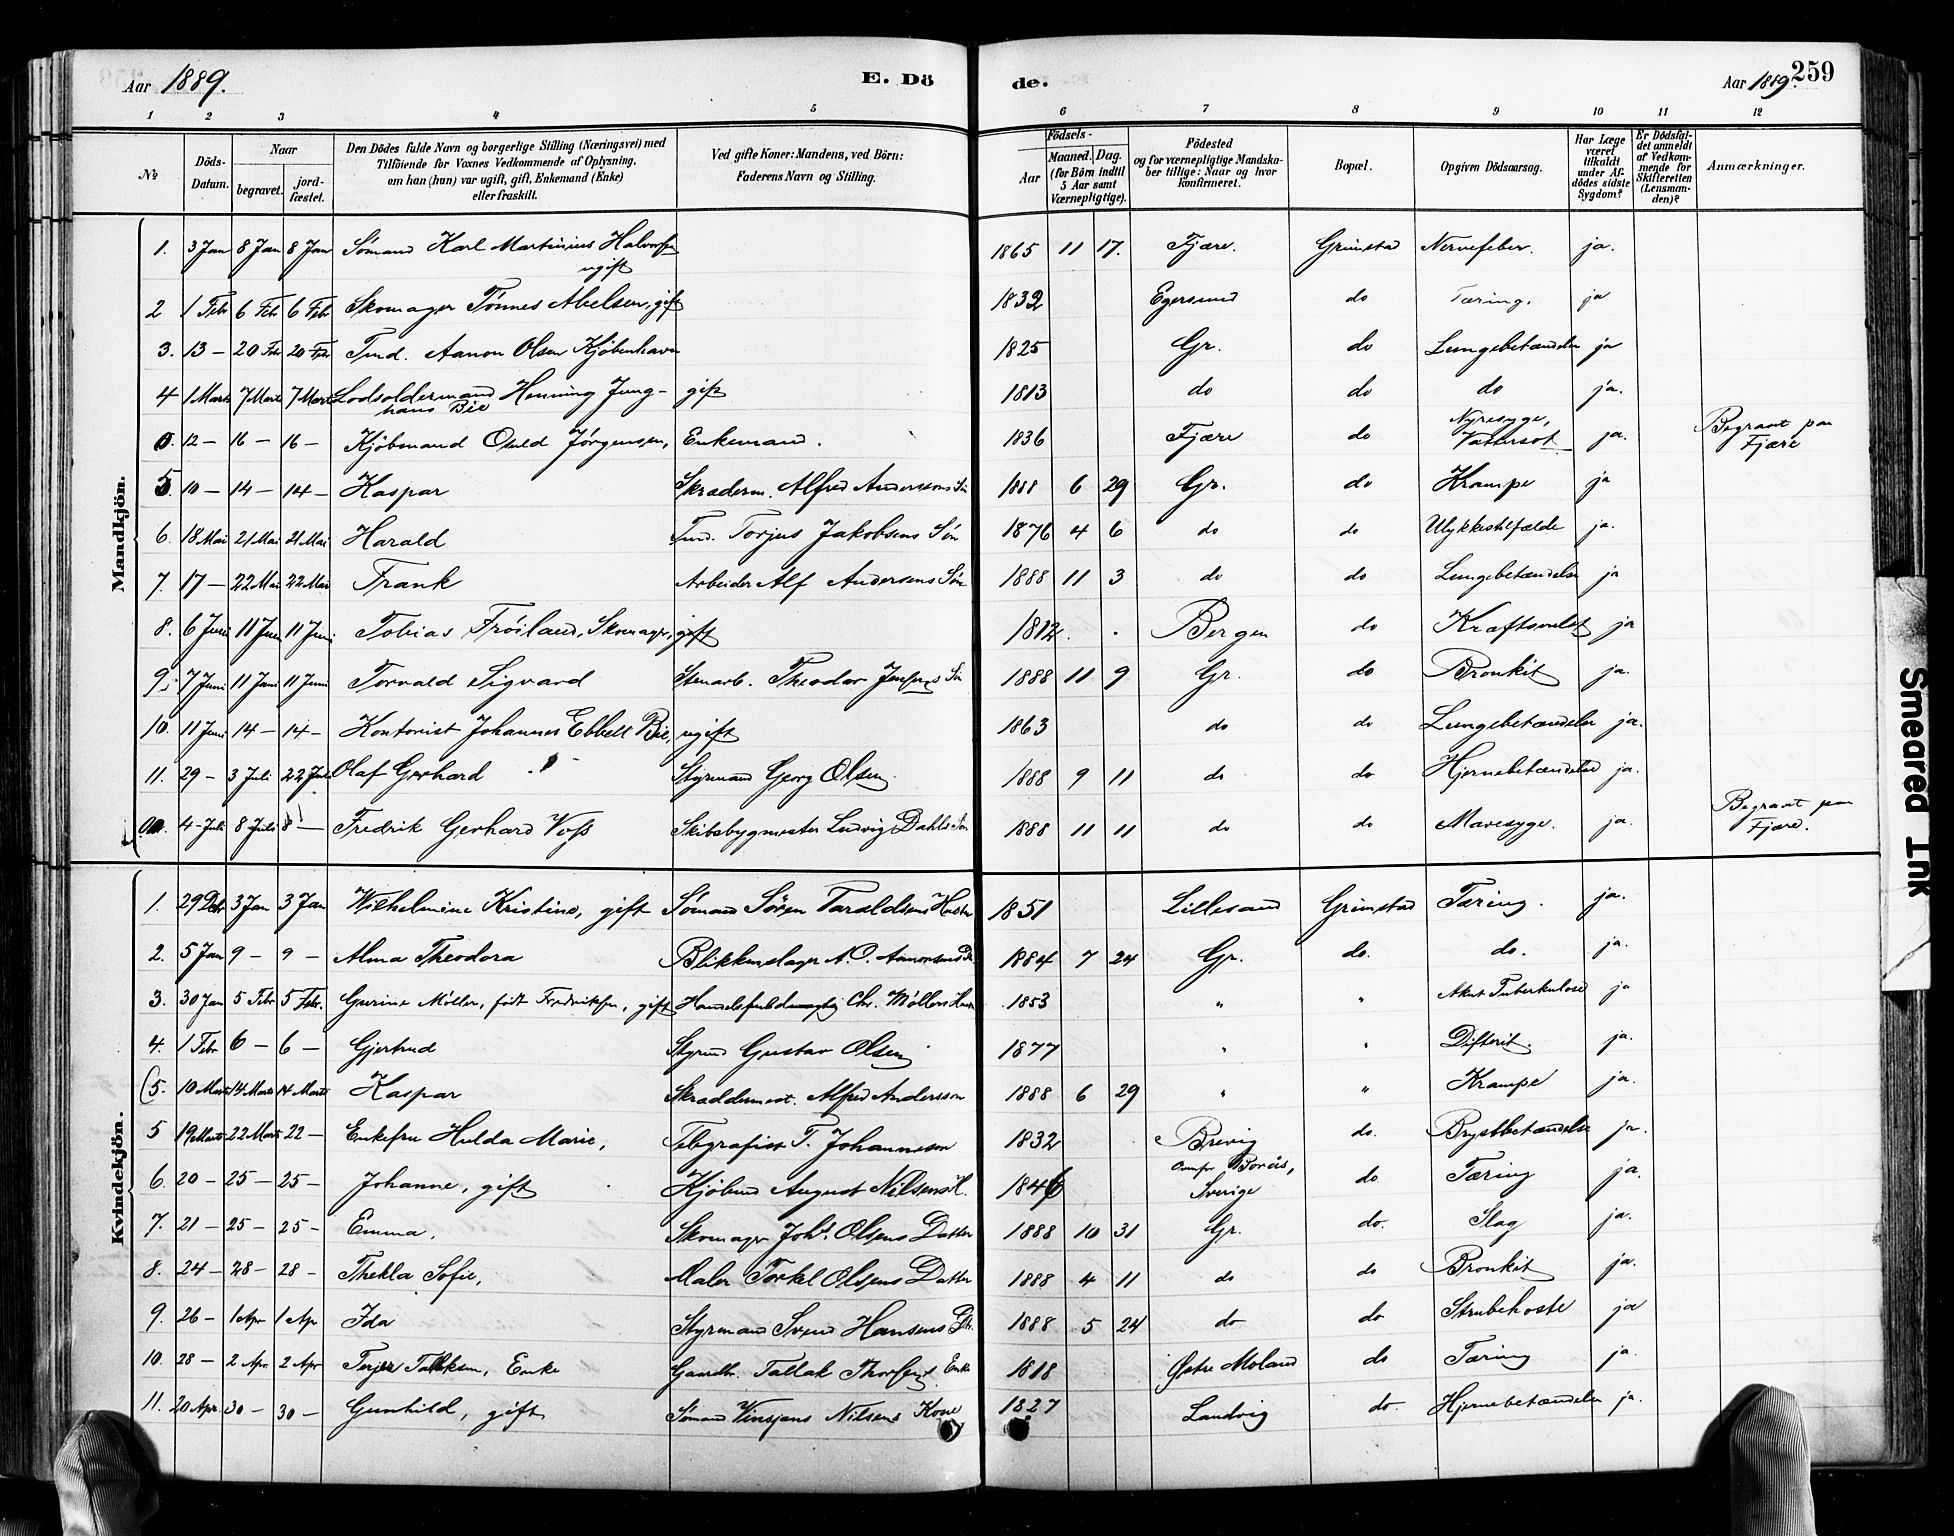 Aar 1889. E. Dö de. Aar 1889. 259
1 2 3 4 5 6 7 8 9 10 11 12
№ Döds-Datum. Naar begravet. jordfæstet. Den Dödes fulde Navn og borgerlige Stilling (Næringsvei) med Tilföiende for Voxnes Vedkommende af Oplysning, om han (hun) var ugift, gift, Enkemand (Enke) eller fraskilt. Ved gifte Koner: Mandens, ved Börn: Faderens Navn og Stilling. Födsels- Aar Maaned. Dag. (for Börn indtil 5 Aar samt Værnepligtige). Födested og for værnepligtige Mandskaber tillige: Naar og hvor konfirmeret. Bopæl. Opgiven Dödsaarsag. Har Læge været tilkaldt under Afdödes sidste Sygdom? Er Dödsfaldet anmeldt af Vedkommende for Skifteretten (Lensmanden)? Anmærkninger.
Mandkjön.
1. 3 Jan 8 Jan 8 Jan Sømand Karl Martinius Halvorsen ugift 1865 11 17. Fjære. Grimstad Nervefeber. ja.
2 1 Febr 6 Febr 6 Febr Skomager Tønnes Abelsen, gift 1832 Egersund do Tæring. ja
3. 13 – 20 Febr 20 Febr Tmd. Aanon Olsen Kjöbenhavn 1825 Gr. do Lungebetændelse ja
4 1 Marts 7 Marts 7 Marts Lodsoldermand Henning Junghans Bie gift 1813 do do do ja.
0. 12 – 16 – 16 – Kjöbmand Osuld Jörgensen, Enkemand. 1836 Fjære do Nyresyge, Vattersot ja. Begravt paa Fjære
5. 10 – 14 – 14 – Kaspar Skræderm. Alfred Anderssons Sön 1888 6 29 Gr. do Krampe ja
6. 18 Mai 21 Mai 21 Mai Harald Tmd. Torjus Jakobsens Sön 1876 4 6 do do Ulykkestilfælde ja.
7. 17 – 22 Mai 22 Mai Frank Arbeider Alf Andersens Sön 1888 11 3 do do Lungebetændelse ja
8. 6 Juni 11 Juni 11 Juni Tobias Fröiland, Skomager, gift 1812. Bergen do Kræftsvulst ja
9. 7 Juni 11 Juni 11 Juni Torvald Sigvard Stenarb. Theodor Jensens Sön 1888 11 9 Gr. do Bronkit ja.
10. 11 Juni 14 – 14 – Kontorist Johannes Ebbell Bie, ugift 1863 do do Lungebetændelse ja.
11. 29 – 3 Juli 22 Juli Olaf Gerhard Styrmand Georg Olsen. 1888 9 11 do do Hjernebetændelse ja.
4 Juli 8 Juli 8 – Fredrik Gerhard Voss Skibsbygmester Ludvig Dahls Sön 1888 11 11 do do Mavesyge. ja. Begravt paa Fjære.
Kvindekjön.
1. 29 Dcbr 3 Jan 3 Jan Wilhelmine Kristine, gift Sømand Sören Taraldsens Hustru 1851 Lillesand Grimstad Tæring. ja.
2. 5 Jan 9 – 9 – Alma Theodora Blikkenslager A. O. Aanonsens Dr 1884 7 24 Gr. do. do. ja.
3. 30 Jan 5 Febr 5 Febr. Gurine Möller, født Fredriksen, gift Handelsfuldmægtig Chr. Möllers Hustru 1853 " " Akut Tuberkulose ja
4. 1 Febr 6 – 6 – Gjertrud Styrmd Gustav Olsen 1877 " " Difterit. ja.
(5. 10 Marts 14 Marts 14 Marts Kaspar Skræddermest. Alfred Andersson 1888 6 29 " " Krampe ja.
5 19 Marts 22 Marts 22 – Enkefru Hulda Marie, Telegrafist T. Johannesen 1832 Brevig do. Brystbetændelse ja.
6. 20 – 25 – 25 – Johanne, gift Kjöbmd August Nilsens H. 1846 Borås, Sverige do Tæring ja.
7. 21 – 25 – 25 – Emma, Skomager Johs. Olsens Datter 1888 10 31 Gr. do. Slag ja.
8. 24 – 28 – 28 – Thekla Sofie, Maler Torkel Olsens Datter 1888 4 11 do do Bronkit ja.
9. 26 – 1 Apr 1 Ap Ida Styrmand Svend Hansens Dtr. 1888 5 24 do do Strubehoste ja
10. 28 – 2 Apr. 2 Apr Enke Gaardbr. Tallak Enke 1818 Østre Moland do Tæring ja.
11. 20 Apr. 30 – 30 – Gunhild, gift Sömand Vinsjans Nilsens Kone 1827 Landvig do. Hjernebetændelse ja.
Smeared Ink